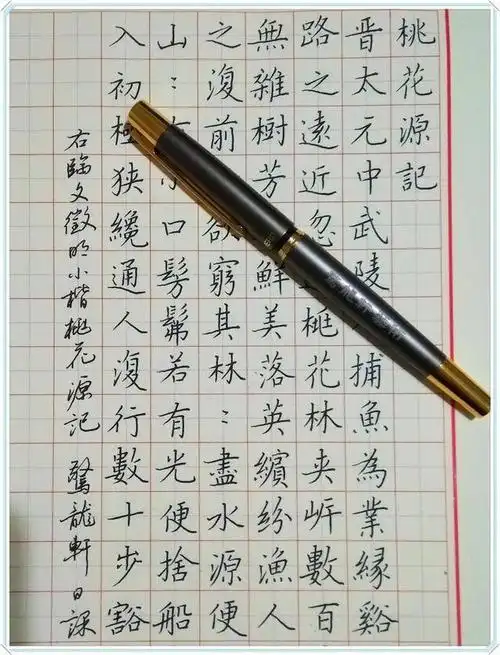 桃花源記
晉太元中武陵捕魚為業緣谿
路之遠近忽桃花林夹岸數百
無雜樹芳鮮美落英繽紛漁人
之復前欲窮其林：盡水源便
山：口髣髴若有光便捨船
入初極狹纔通人復行數十步豁
右臨文徵明小楷桃花源記 驚龍軒日課